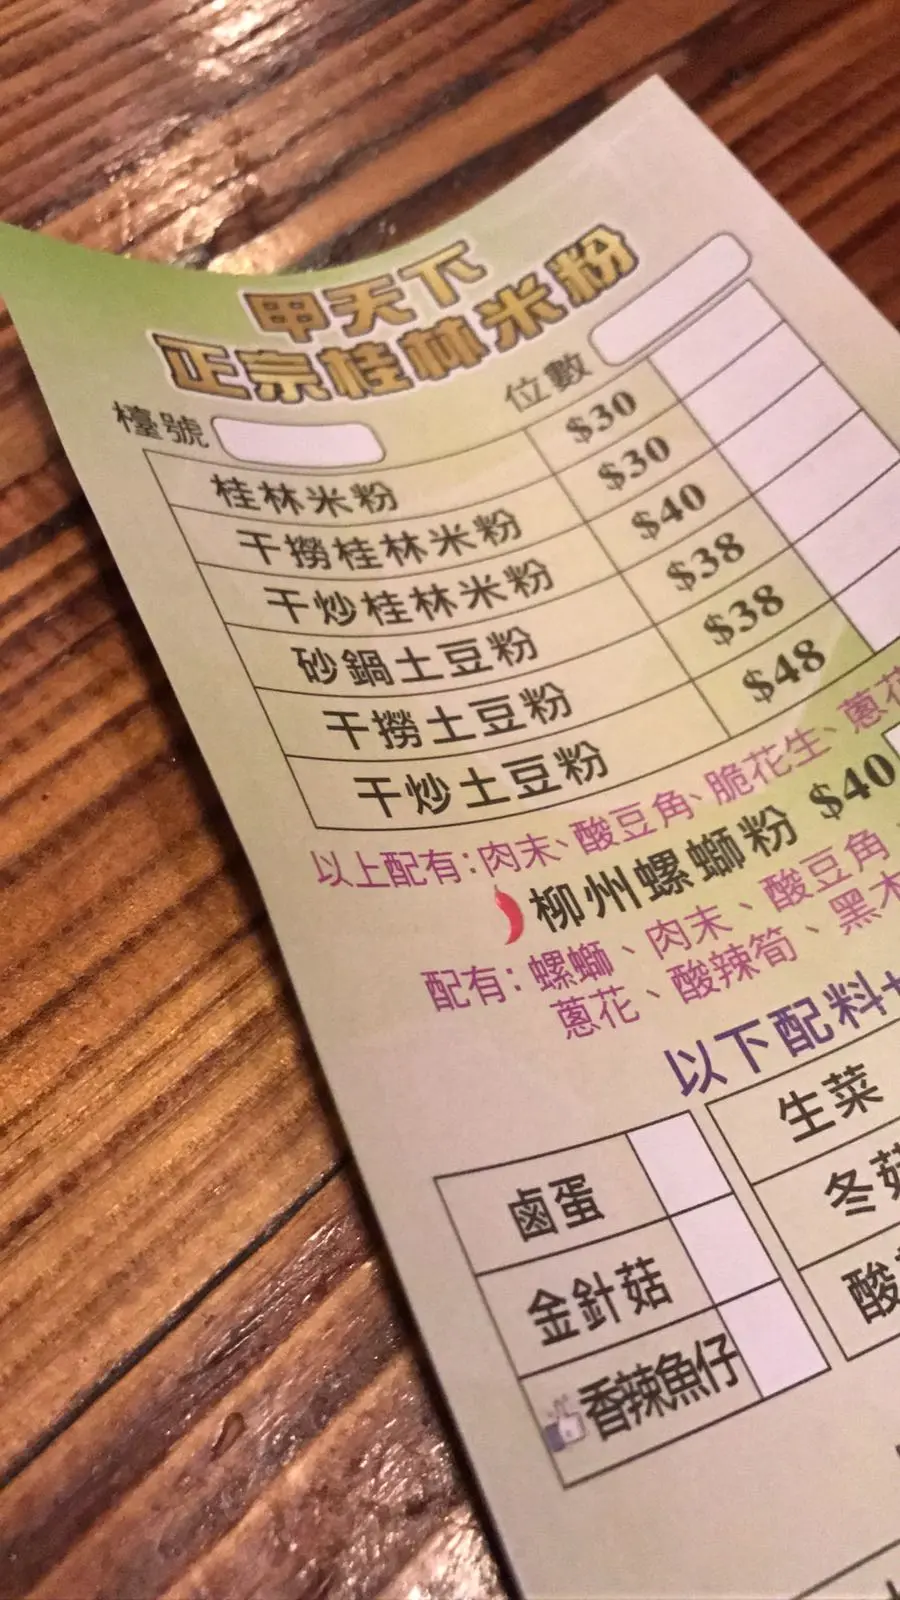 甲天下
正宗桂林米粉
檯號
位數
桂林米粉 $30
干撈桂林米粉 $30
干炒桂林米粉 $40
砂鍋土豆粉 $38
干撈土豆粉 $38
干炒土豆粉 $48
以上配有:肉末、酸豆角、脆花生、蔥花
柳州螺螄粉 $40
配有:螺螄、肉末、酸豆角、
蔥花、酸辣筍、黑木
以下配料+
鹵蛋 生菜
金針菇 冬菇
香辣魚仔 酸